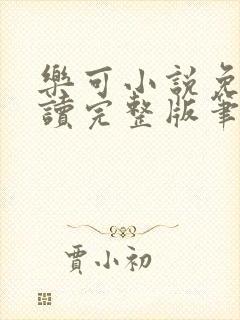 樂可小說免
讀完整版筆
賈小初